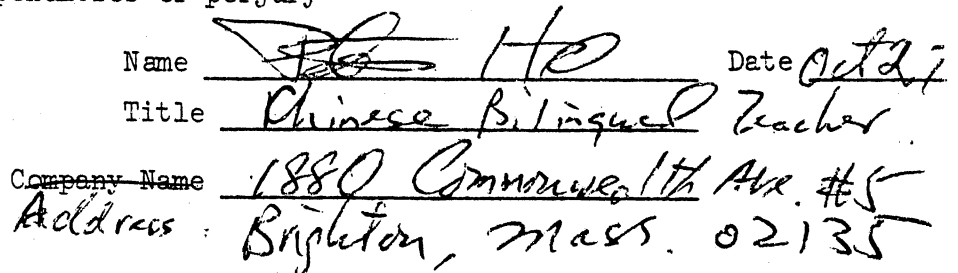 penalties of perjury
Name Ho Date Oct 27
Title Chinese Bilingual Teacher
Company Name 1880 Commonwealth Ave. #5
Address: Brighton, Mass. 02135